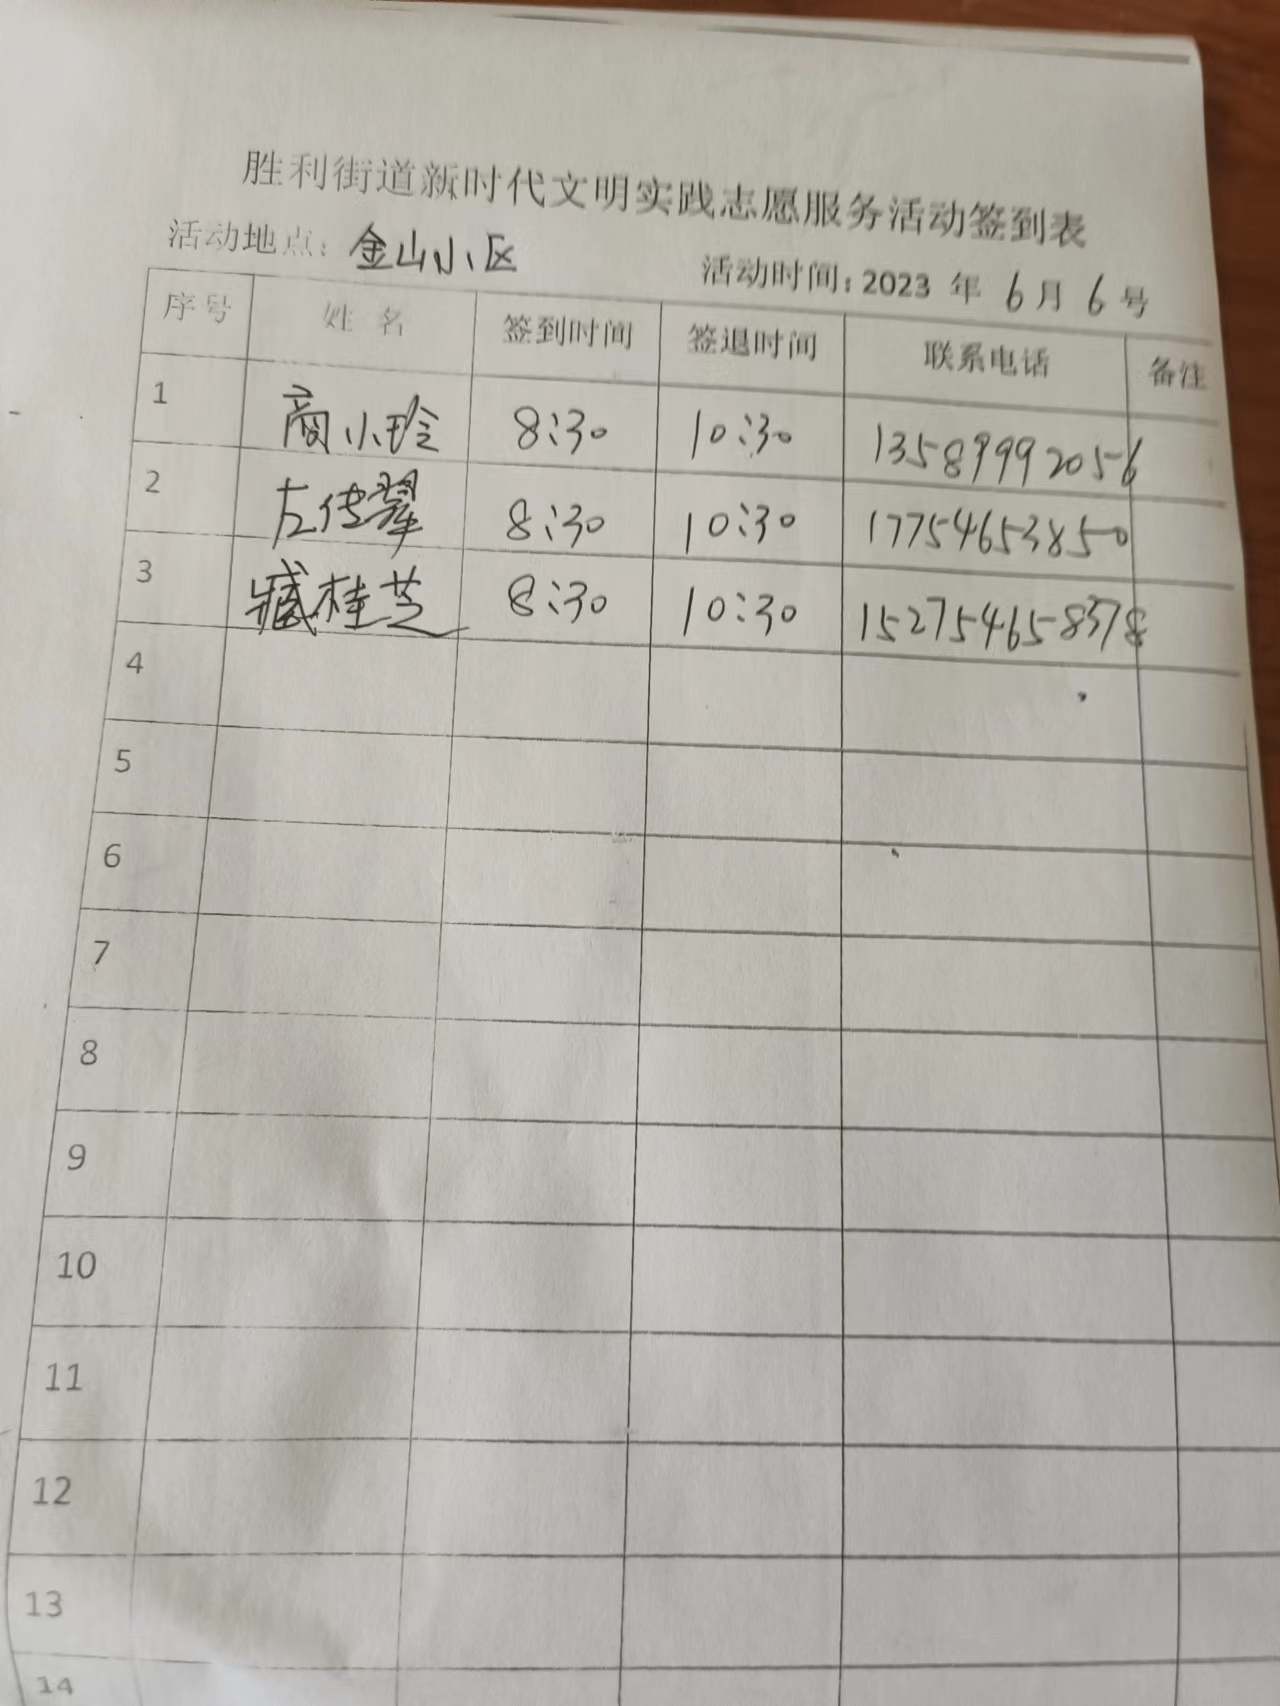 胜利街道新时代文明实践志愿服务活动签到表
活动地点：金山小区 活动时间：2023 年 6 月 6 号
序号 姓 名 签到时间 签退时间 联系电话 备注
1 商小玲 8:30 10:30 13589992056
2 左传翠 8:30 10:30 17754653850
3 臧桂芝 8:30 10:30 152754658378
4
5
6
7
8
9
10
11
12
13
14